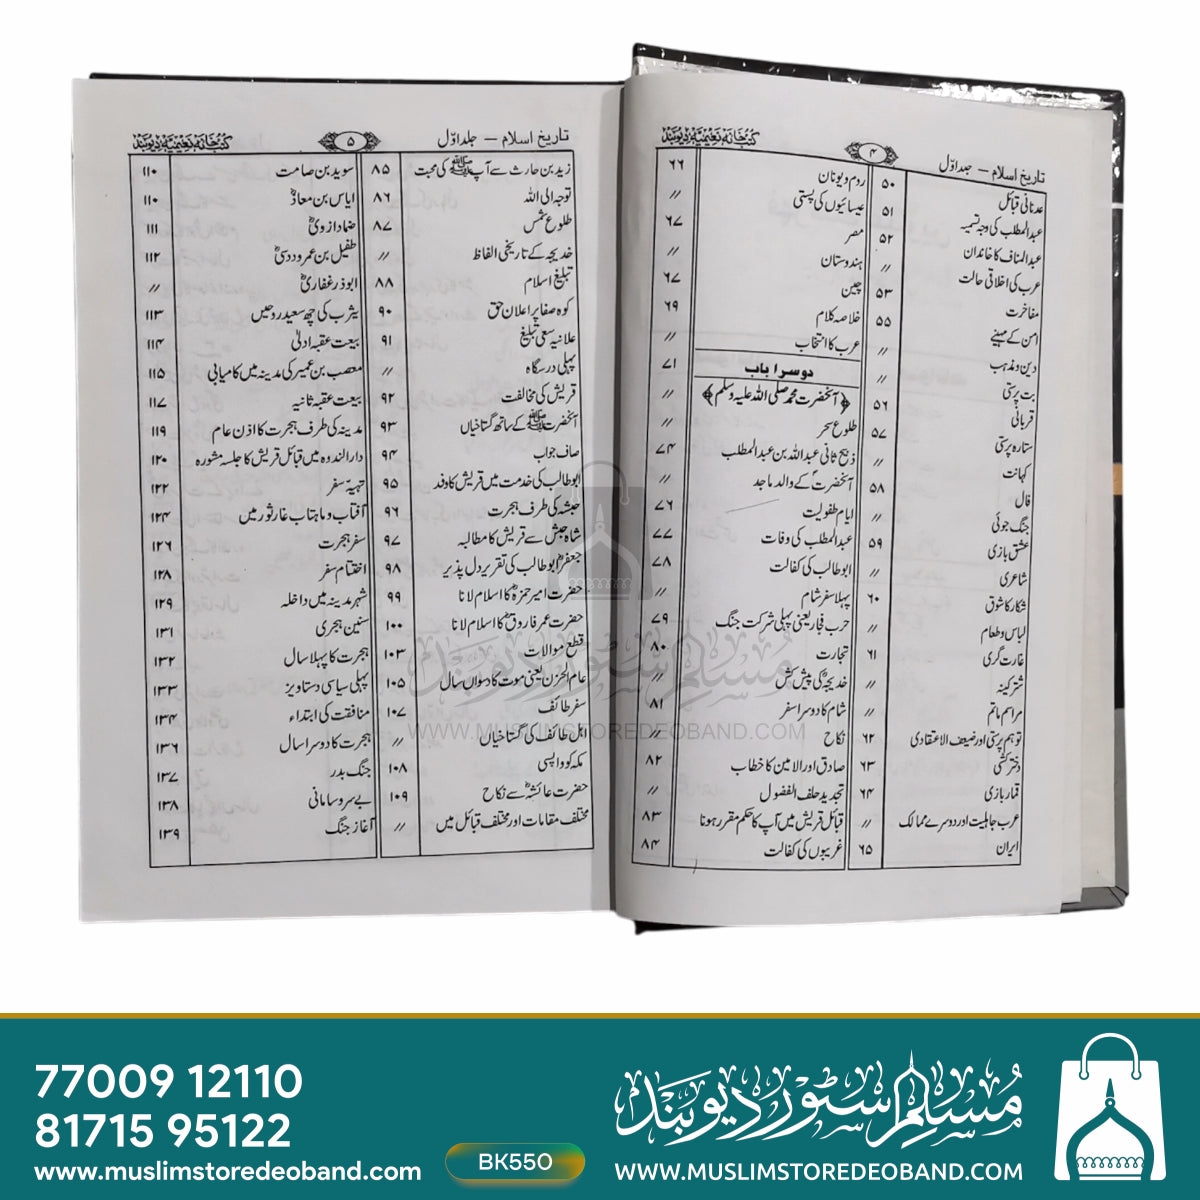 تاریخ اسلام – جلد اوّل
۴
کتب خانہ نعیمیہ دیوبند
عدنانی قبائل ۵۰
عبدالمطلب کی وجہ تسمیہ ۵۱
عبدالمناف کا خاندان ۵۲
عرب کی اخلاقی حالت //
مفاخرت ۵۳
امن کے مہینے ۵۵
دین و مذہب //
بت پرستی //
قربانی ۵۶
ستارہ پرستی ۵۷
کہانت //
فال ۵۸
جنگ جوئی //
عشق بازی ۵۹
شاعری //
شکار کا شوق ۶۰
لباس و طعام //
غارت گری ۶۱
شتر کینہ //
مراسم ماتم //
توہم پرستی اور ضعیف الاعتقادی ۶۲
دختر کشی ۶۳
قمار بازی ۶۴
عرب جاہلیت اور دوسرے ممالک //
ایران ۶۵
روم و یونان ۶۶
عیسائیوں کی پستی //
مصر ۶۷
ہندوستان
چین ۶۷
خلاصہ کلام ۶۹
عرب کا انتخاب //
دوسرا باب ۷۱
﴿آنحضرت محمد صلی اللہ علیہ وسلم﴾
طلوع سحر //
ذبیح ثانی عبداللہ بن عبدالمطلب ۷۴
آنحضرتؐ کے والد ماجد //
ایام طفولیت ۷۶
عبدالمطلب کی وفات ۷۷
ابوطالب کی کفالت ۷۸
پہلا سفر شام //
حرب فجار یعنی پہلی شرکت جنگ ۷۹
تجارت ۸۰
خدیجہؓ کی پیش کش //
شام کا دوسرا سفر ۸۱
نکاح //
صادق اور الامین کا خطاب ۸۲
تجدید حلف الفضول //
قبائل قریش میں آپ کا حکم مقرر ہونا ۸۳
غریبوں کی کفالت ۸۴
تاریخ اسلام – جلد اوّل
۵
کتب خانہ نعیمیہ دیوبند
زید بن حارث سے آپ ﷺ کی محبت ۸۵
توجہ الی اللہ ۸۶
طلوع شمس ۸۷
خدیجہ کے تاریخی الفاظ //
تبلیغ اسلام ۸۸
کوہ صفا پر اعلان حق ۹۰
علانیہ سعی تبلیغ ۹۱
پہلی درسگاہ //
قریش کی مخالفت ۹۲
آنحضرت ﷺ کے ساتھ گستاخیاں ۹۳
صاف جواب ۹۴
ابوطالب کی خدمت میں قریش کا وفد ۹۵
حبشہ کی طرف ہجرت ۹۶
شاہ حبش سے قریش کا مطالبہ ۹۷
جعفرؓ ابو طالب کی تقریر دل پذیر ۹۸
حضرت امیر حمزہؓ کا اسلام لانا ۹۹
حضرت عمر فاروقؓ کا اسلام لانا ۱۰۰
قطع موالات ۱۰۳
عام الحزن یعنی موت کا دسواں سال ۱۰۵
سفر طائف ۱۰۷
اہل طائف کی گستاخیاں //
مکہ کو واپسی ۱۰۸
حضرت عائشہؓ سے نکاح ۱۰۹
مختلف مقامات اور مختلف قبائل میں //
سوید بن صامت ۱۱۰
ایاس بن معاذؓ ۱۱۰
ضماد ازدیؓ ۱۱۱
طفیل بن عمرو دوسیؓ ۱۱۲
ابوذر غفاریؓ //
یثرب کی چھ سعید روحیں ۱۱۳
بیعت عقبہ اولیٰ ۱۱۴
مصعب بن عمیر کی مدینہ میں کامیابی ۱۱۵
بیعت عقبہ ثانیہ ۱۱۷
مدینہ کی طرف ہجرت کا اذن عام ۱۱۹
دارالندوہ میں قبائل قریش کا جلسہ مشورہ ۱۲۰
تہیہ سفر ۱۲۲
آفتاب و ماہتاب غار ثور میں ۱۲۴
سفر ہجرت ۱۲۶
اختتام سفر ۱۲۸
شہر مدینہ میں داخلہ ۱۲۹
سنین ہجری ۱۳۱
ہجرت کا پہلا سال ۱۳۲
پہلی سیاسی دستاویز ۱۳۳
منافقت کی ابتداء ۱۳۴
ہجرت کا دوسرا سال ۱۳۶
جنگ بدر ۱۳۷
بے سروسامانی ۱۳۸
آغاز جنگ ۱۳۹
مسلم سٹور دیوبند
WWW.MUSLIMSTOREDEOBAND.COM
77009 12110
81715 95122
www.muslimstoredeoband.com
BK550
مسلم سٹور دیوبند
WWW.MUSLIMSTOREDEOBAND.COM